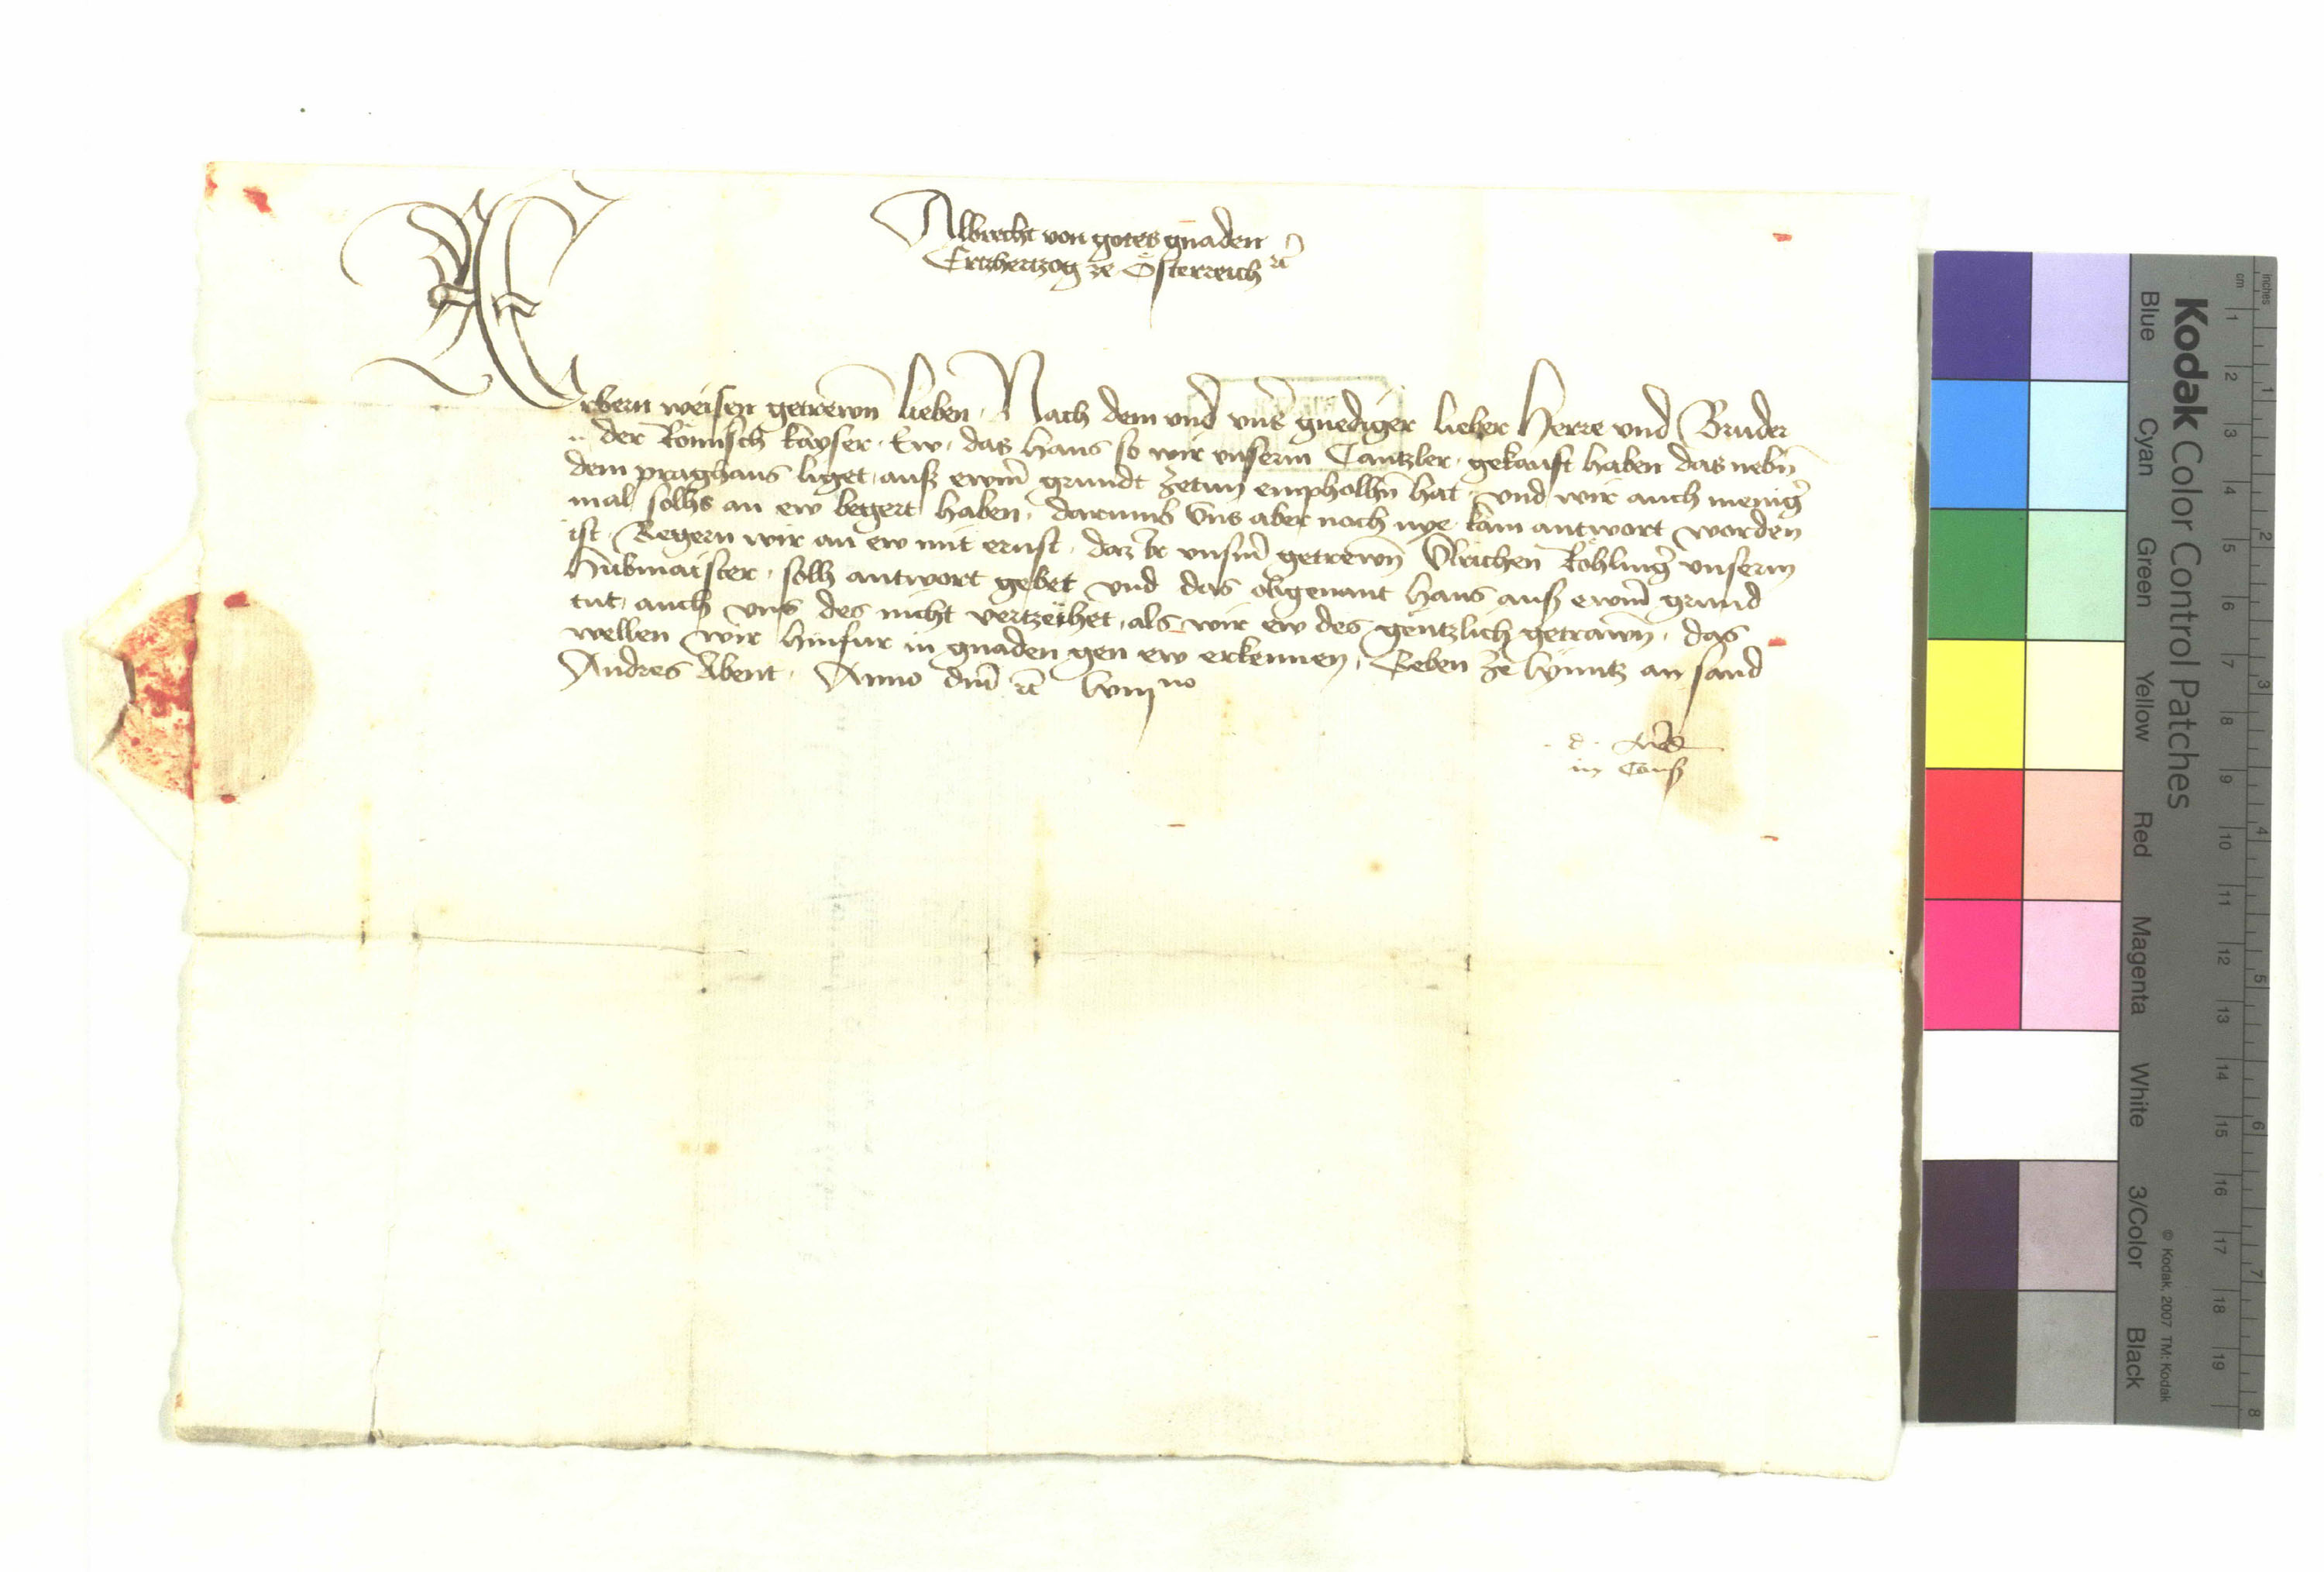 Albrecht von gotes gnaden
Ertzhertzog ze Österreich etc
Erbern weisen getrewn lieben. Nach dem und unser gnediger lieber Herre und Bruder
.. der Römisch kayser. Ew. das haus so wir unserm Cantzler. gekauft haben das nebn
dem praghaus liget. auß ewrm grundt zetun empholhn hat. und wir auch meniger
mal solhs an ew begert haben. darumb uns aber noch nye kain antwort worden
ist. Begern wir an ew mit ernst. daz ir unserm getrewn Ulrichen Röhlinger unserm
hubmaister. solh antwort gebet und das obgenant haus auß ewrm grund
tut. auch uns des nicht vertzeihet. als wir ew des gentzlich getrawn. das
wellen wir hinfur in gnaden gen ew erkennen. Geben ze Lynntz an sand
Andres Abent. Anno dm̄ etc lviij no
in Cons
Kodak Color Control Patches
Blue Cyan Green Yellow Red Magenta White 3/Color Black
© Kodak, 2007 TM: Kodak
inches 1 2 3 4 5 6 7 8
cm 1 2 3 4 5 6 7 8 9 10 11 12 13 14 15 16 17 18 19